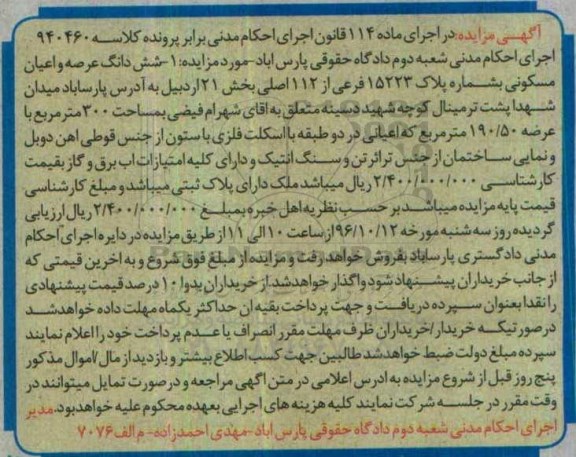 آگهـی مزایده:در اجرای ماده ۱۱۴ قانون اجرای احکام مدنی برابر پرونده کلاسـه ۹۴۰۴۶۰
اجرای احکام مدنی شعبه دوم دادگاه حقوقی پارس اباد-مورد مزایده:۱-شش دانگ عرصه واعیان
مسکونی بشـماره پلاک ۱۵۲۲۳ فرعی از ۱۱۲ اصلی بخش ۲۱ اردبیل به آدرس پارساباد میدان
شـهدا پشت ترمینال کوچه شهید دسینه متعلق به اقای شهرام فیضی بمساحت ۳۰۰ مترمربع با
عرصه ۱۹۰/۵۰ مترمربع که اعیانی در دو طبقه با اسکلت فلزی با ستون از جنس قوطی اهن دوبل
و نمایی ساختمان از جنس تراتر تن و سـنگ انتیک و دارای کلیه امتیازات اب برق و گاز بقیمت
کارشناسـی ۲/۴۰۰/۰۰۰/۰۰۰ ریال میباشد ملک دارای پلاک ثبتی میباشد و مبلغ کارشناسی
قیمت پایه مزایده میباشـد بر حسـب نظریه اهل خبره بمبلـغ ۲/۴۰۰/۰۰۰/۰۰۰ ریال ارزیابی
گردیده روز سه شنبه مورخه ۹۶/۱۰/۱۲ از ساعت ۱۰ الی ۱۱ از طریق مزایده در دایره اجرای احکام
مدنی دادگستری پارساباد بفروش خواهد رفت و مزایده از مبلغ فوق شروع و به اخرین قیمتی که
از جانب خریداران پیشـنهاد شود واگذار خواهد شد.از خریداران بدوا ۱۰ درصد قیمت پیشنهادی
را نقدا بعنوان سـپرده دریافـت و جهت پرداخت بقیه ان حداکثر یکماه مهلت داده خواهد شـد
در صورتیکـه خریدار/خریداران ظرف مهلت مقرر انصراف یا عـدم پرداخت خود را اعلام نمایند
سپرده مبلغ دولت ضبط خواهد شد طالبین جهت کسب اطلاع بیشتر و بازدید از مال/اموال مذکور
پنج روز قبل از شروع مزایده به ادرس اعلامی در متن اگهی مراجعه و در صورت تمایل میتوانند در
وقت مقرر در جلسـه شرکت نمایند کلیه هزینه های اجرایی بعهده محکوم علیه خواهد بود.مدیر
اجرای احکام مدنی شعبه دوم دادگاه حقوقی پارس اباد -مهدی احمدزاده- م الف ۷۰۷۶